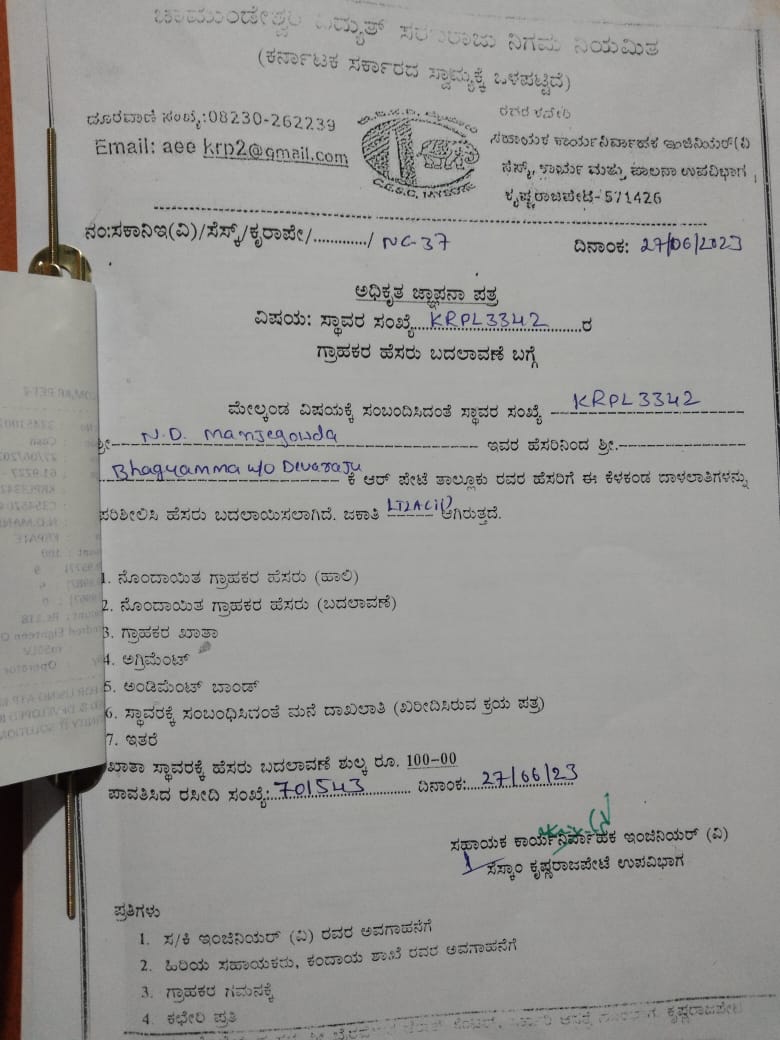 ಚಾಮುಂಡೇಶ್ವರಿ ವಿದ್ಯುತ್ ಸರಬರಾಜು ನಿಗಮ ನಿಯಮಿತ
(ಕರ್ನಾಟಕ ಸರ್ಕಾರದ ಸ್ವಾಮ್ಯಕ್ಕೆ ಒಳಪಟ್ಟಿದೆ)
ದೂರವಾಣಿ ಸಂಖ್ಯೆ:08230-262239
Email: aee krp2@gmail.com
C.E.S.C, MYSORE
ರವರ ಕಛೇರಿ
ಸಹಾಯಕ ಕಾರ್ಯನಿರ್ವಾಹಕ ಇಂಜಿನಿಯರ್(ವಿ
ಸೆಸ್ಕ್, ಕಾರ್ಯ ಮತ್ತು ಪಾಲನಾ ಉಪವಿಭಾಗ,
ಕೃಷ್ಣರಾಜಪೇಟೆ-571426
ನಂ:ಸಕಾನಿಇ(ವಿ)/ಸೆಸ್ಕ್/ಕೃರಾಪೇ/............/ NC-37 ದಿನಾಂಕ: 27/06/2023
ಅಧಿಕೃತ ಜ್ಞಾಪನಾ ಪತ್ರ
ವಿಷಯ: ಸ್ಥಾವರ ಸಂಖ್ಯೆ KRPL3342 ರ
ಗ್ರಾಹಕರ ಹೆಸರು ಬದಲಾವಣೆ ಬಗ್ಗೆ
ಮೇಲ್ಕಂಡ ವಿಷಯಕ್ಕೆ ಸಂಬಂದಿಸಿದಂತೆ ಸ್ಥಾವರ ಸಂಖ್ಯೆ KRPL3342
ಶ್ರೀ N.D. Manjegowda ಇವರ ಹೆಸರಿನಿಂದ ಶ್ರೀ.
Bhagyamma w/o Devaraju ಕೆ ಆರ್ ಪೇಟೆ ತಾಲ್ಲೂಕು ರವರ ಹೆಸರಿಗೆ ಈ ಕೆಳಕಂಡ ದಾಳಲಾತಿಗಳನ್ನು
ಪರಿಶೀಲಿಸಿ ಹೆಸರು ಬದಲಾಯಿಸಲಾಗಿದೆ. ಜಕಾತಿ LT2A(i) ಆಗಿರುತ್ತದೆ.
1. ನೊಂದಾಯಿತ ಗ್ರಾಹಕರ ಹೆಸರು (ಹಾಲಿ)
2. ನೊಂದಾಯಿತ ಗ್ರಾಹಕರ ಹೆಸರು (ಬದಲಾವಣೆ)
3. ಗ್ರಾಹಕರ ಖಾತಾ
4. ಅಗ್ರಿಮೆಂಟ್
5. ಅಂಡಿಮೆಂಟ್ ಬಾಂಡ್
6. ಸ್ಥಾವರಕ್ಕೆ ಸಂಬಂಧಿಸಿದಂತೆ ಮನೆ ದಾಖಲಾತಿ (ಖರೀದಿಸಿರುವ ಕ್ರಯ ಪತ್ರ)
7. ಇತರೆ
ಖಾತಾ ಸ್ಥಾವರಕ್ಕೆ ಹೆಸರು ಬದಲಾವಣೆ ಶುಲ್ಕ ರೂ. 100-00
ಪಾವತಿಸಿದ ರಸೀದಿ ಸಂಖ್ಯೆ: 701543 ದಿನಾಂಕ: 27/06/23
ಸಹಾಯಕ ಕಾರ್ಯನಿರ್ವಾಹಕ ಇಂಜಿನಿಯರ್ (ವಿ)
ಸೆಸ್ಕಾಂ ಕೃಷ್ಣರಾಜಪೇಟೆ ಉಪವಿಭಾಗ
ಪ್ರತಿಗಳು
1. ಸ/ಕಿ ಇಂಜಿನಿಯರ್ (ವಿ) ರವರ ಅವಗಾಹನೆಗೆ
2. ಹಿರಿಯ ಸಹಾಯಕರು, ಕಂದಾಯ ಶಾಖೆ ರವರ ಅವಗಾಹನೆಗೆ
3. ಗ್ರಾಹಕರ ಗಮನಕ್ಕೆ
4. ಕಛೇರಿ ಪ್ರತಿ
ಕೃಷ್ಣರಾಜಪೇಟ